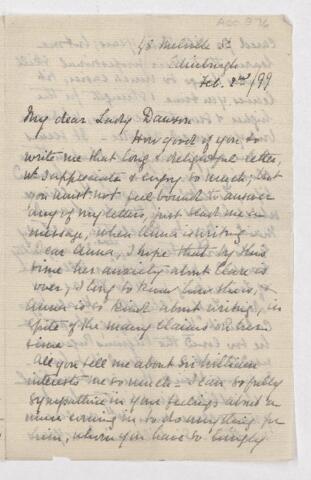 Acc 976
48 Melville St.
Edinburgh
Feb. 2nd/99
My dear Lady Dawson
How good of you to
write me that long & delightful letter,
it I appreciate & enjoy so much, but
you must not feel bound to answer
any of my letters, just send me a
message, when Anna is writing.
Dear Anna, I hope that by this
time her anxiety about Clare is
over, I long to know how she is, &
Anna is so kind about writing, in
spite of the many claims on her
time.
All you tell me about Sir William
interests me so much. I can so fully
sympathise in your feelings about a
nurse coming in to do anything for
him, whom you have so lovingly